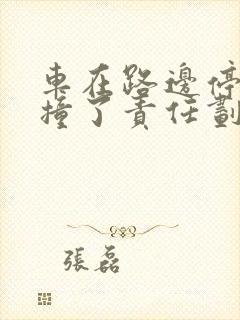 車在路邊停
撞了責任劃
張磊